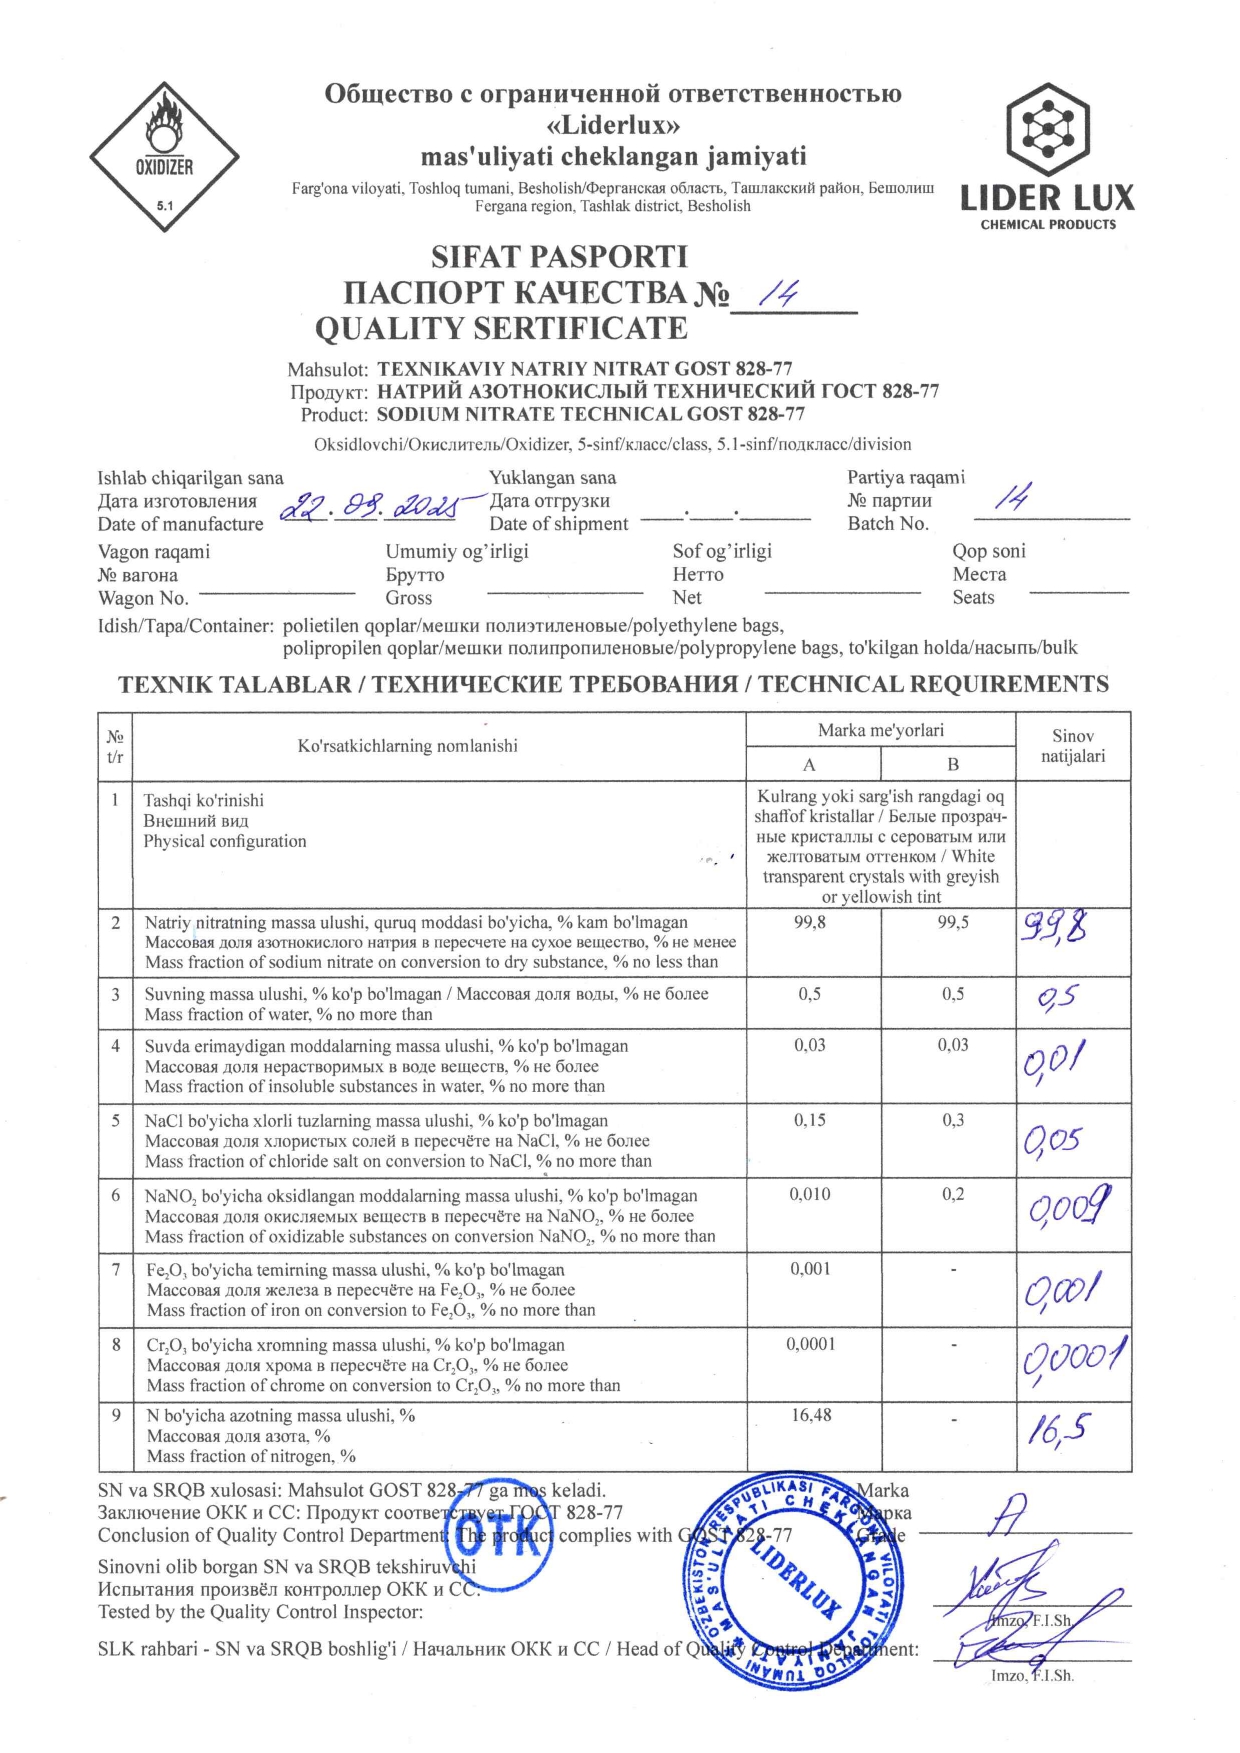 Общество с ограниченной ответственностью
«Liderlux»
mas'uliyati cheklangan jamiyati
Farg'ona viloyati, Toshloq tumani, Besholish/Ферганская область, Ташлакский район, Бешолиш
Fergana region, Tashlak district, Besholish
OXIDIZER
5.1
LIDER LUX
CHEMICAL PRODUCTS
SIFAT PASPORTI
ПАСПОРТ КАЧЕСТВА № 14
QUALITY SERTIFICATE
Mahsulot: TEXNIKAVIY NATRIY NITRAT GOST 828-77
Продукт: НАТРИЙ АЗОТНОКИСЛЫЙ ТЕХНИЧЕСКИЙ ГОСТ 828-77
Product: SODIUM NITRATE TECHNICAL GOST 828-77
Oksidlovchi/Окислитель/Oxidizer, 5-sinf/класс/class, 5.1-sinf/подкласс/division
Ishlab chiqarilgan sana Yuklangan sana Partiya raqami
Дата изготовления 22.09.2025 Дата отгрузки № партии 14
Date of manufacture Date of shipment Batch No.
Vagon raqami Umumiy og’irligi Sof og’irligi Qop soni
№ вагона Брутто Нетто Места
Wagon No. Gross Net Seats
Idish/Тара/Container: polietilen qoplar/мешки полиэтиленовые/polyethylene bags,
polipropilen qoplar/мешки полипропиленовые/polypropylene bags, to'kilgan holda/насыпь/bulk
TEXNIK TALABLAR / ТЕХНИЧЕСКИЕ ТРЕБОВАНИЯ / TECHNICAL REQUIREMENTS
№ t/r Ko'rsatkichlarning nomlanishi Marka me'yorlari Sinov natijalari
A B
1 Tashqi ko'rinishi
Внешний вид
Physical configuration
Kulrang yoki sarg'ish rangdagi oq
shaffof kristallar / Белые прозрач-
ные кристаллы с сероватым или
желтоватым оттенком / White
transparent crystals with greyish
or yellowish tint
2 Natriy nitratning massa ulushi, quruq moddasi bo'yicha, % kam bo'lmagan 99,8 99,5 99,8
Массовая доля азотнокислого натрия в пересчете на сухое вещество, % не менее
Mass fraction of sodium nitrate on conversion to dry substance, % no less than
3 Suvning massa ulushi, % ko'p bo'lmagan / Массовая доля воды, % не более 0,5 0,5 0,5
Mass fraction of water, % no more than
4 Suvda erimaydigan moddalarning massa ulushi, % ko'p bo'lmagan 0,03 0,03 0,01
Массовая доля нерастворимых в воде веществ, % не более
Mass fraction of insoluble substances in water, % no more than
5 NaCl bo'yicha xlorli tuzlarning massa ulushi, % ko'p bo'lmagan 0,15 0,3 0,05
Массовая доля хлористых солей в пересчёте на NaCl, % не более
Mass fraction of chloride salt on conversion to NaCl, % no more than
6 NaNO₂ bo'yicha oksidlangan moddalarning massa ulushi, % ko'p bo'lmagan 0,010 0,2 0,009
Массовая доля окисляемых веществ в пересчёте на NaNO₂, % не более
Mass fraction of oxidizable substances on conversion NaNO₂, % no more than
7 Fe₂O₃ bo'yicha temirning massa ulushi, % ko'p bo'lmagan 0,001 - 0,001
Массовая доля железа в пересчёте на Fe₂O₃, % не более
Mass fraction of iron on conversion to Fe₂O₃, % no more than
8 Cr₂O₃ bo'yicha xromning massa ulushi, % ko'p bo'lmagan 0,0001 - 0,00001
Массовая доля хрома в пересчёте на Cr₂O₃, % не более
Mass fraction of chrome on conversion to Cr₂O₃, % no more than
9 N bo'yicha azotning massa ulushi, % 16,48 - 16,5
Массовая доля азота, %
Mass fraction of nitrogen, %
SN va SRQB xulosasi: Mahsulot GOST 828-77 ga mos keladi. Marka
Заключение ОКК и СС: Продукт соответствует ГОСТ 828-77 Марка A
Conclusion of Quality Control Department: The product complies with GOST 828-77 Grade
Sinovni olib borgan SN va SRQB tekshiruvchi
Испытания произвёл контроллер ОКК и СС:
Tested by the Quality Control Inspector:
Imzo, F.I.Sh.
SLK rahbari - SN va SRQB boshlig'i / Начальник ОКК и СС / Head of Quality Control Department:
Imzo, F.I.Sh.
ОТК
O'ZBEKISTON RESPUBLIKASI FARG'ONA VILOYATI TOSHLOQ TUMANI
MAS'ULIYATI CHEKLANGAN JAMIYATI
LIDERLUX